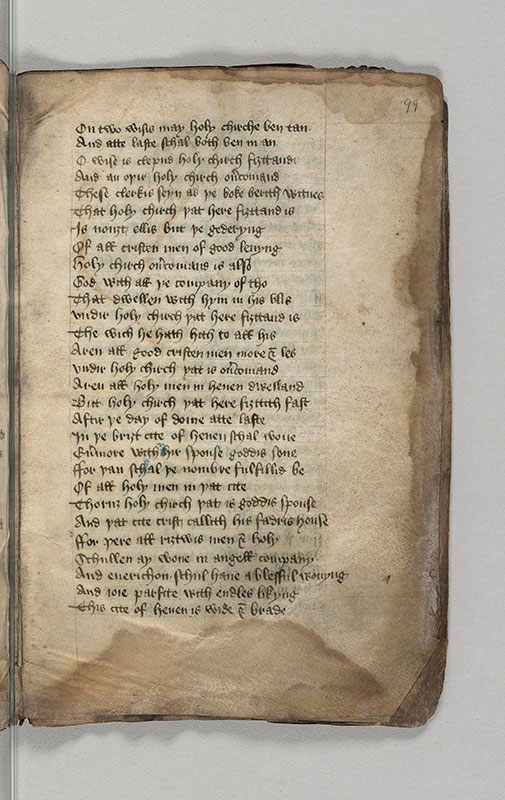 99
On two wisis may holy chirche ben tan
And atte laste schal both ben in an
O wise is clepud holy chirch fiztand
And an oþir holy chirch ou͛comand
These clerkis seyn as þe boke berith witnes
That holy chirch þat here fiztand is
Is nouzt ellis but þe gederyng
Of all cristen men of good leuyng
Holy chirch ou͛comand is also
God with all þe company of tho
That dwellen with hym in his blis
Vndir holy chirch þat here fiztand is
The wich he hath hith to all his
Aren all good cristen men more & les
Vndir holy chirch þat is ou͛comand
Aren all holy men in heuen dwelland
But holy chirch þat here fiztith fast
Aftir þe day of dome atte laste
In þe brizt cite of heuen schal wone
Euirmore with hir spouse goddis sone
ffor þan schal þe nombre fulfillid be
Of all holy men in þat cite
Thoruz holy chirch þat is goddis spouse
And þat cite crist callith his fadris house
ffor þere all riztwis men & holy
Schullen ay wone in angell company
And euerichon schul haue a blesful wonyng
And ioie parfite with endles likyng
This cite of heuen is wide & brade